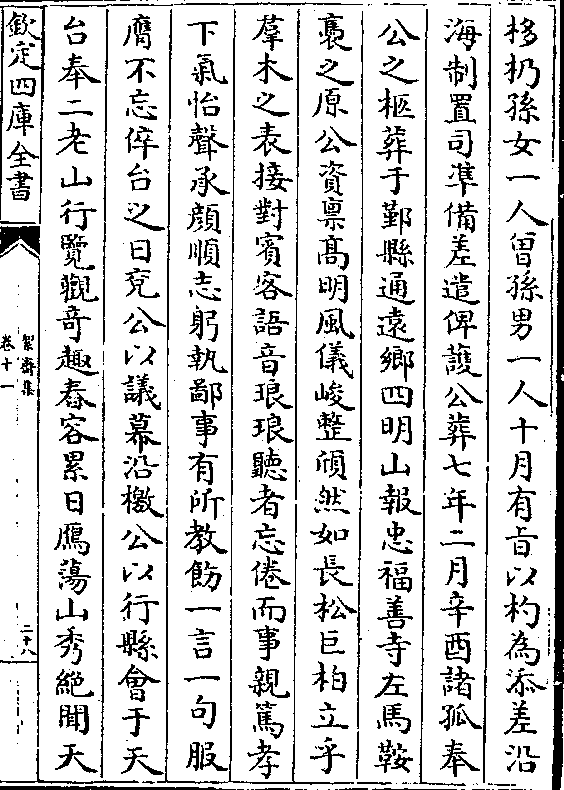 杉扔孫女一人曾孫男一人十月有旨以杓為添差沿
海制置司凖備差遣俾護公葬七年二月辛酉諸孤奉
公之柩葬于鄞縣通遠鄉四明山報忠福善寺左馬鞍
褭之原公資禀髙明風儀峻整頎然如長松巨柏立乎
羣木之表接對賓客語音琅琅聽者忘倦而事親篤孝
下氣怡聲承顔順志躬執鄙事有所教飭一言一句服
膺不忘倅台之日兗公以議幕沿檄公以行縣㑹于天
台奉二老山行覽觀奇趣舂容累日鴈蕩山秀絶聞天
欽定四庫全書
絜齋集
卷十一
二十八